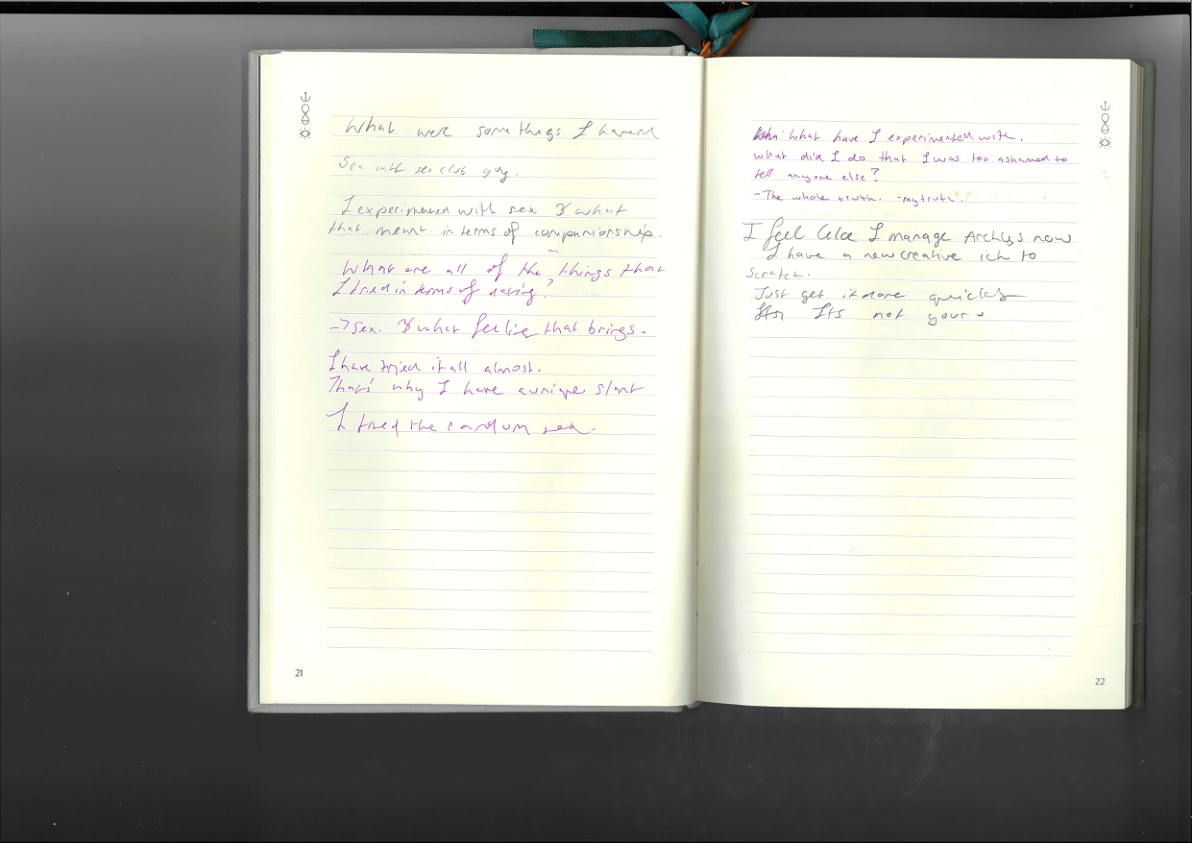 What were some things I havent
Sex with sex club guy.
I experimented with sex & what
that meant in terms of companionship.
What are all of the things that
I tried in terms of dating?
→ Sex. & what feelie that brings.
I have tried it all almost.
That's why I have a unique slant
I tried the random sex.
21
What have I experimented with.
what did I do that I was too ashamed to
tell anyone else?
- The whole truth. - my truth.
I feel like I manage now
I have a new creative ich to
scratch.
Just get it done quickly
Its not your
22